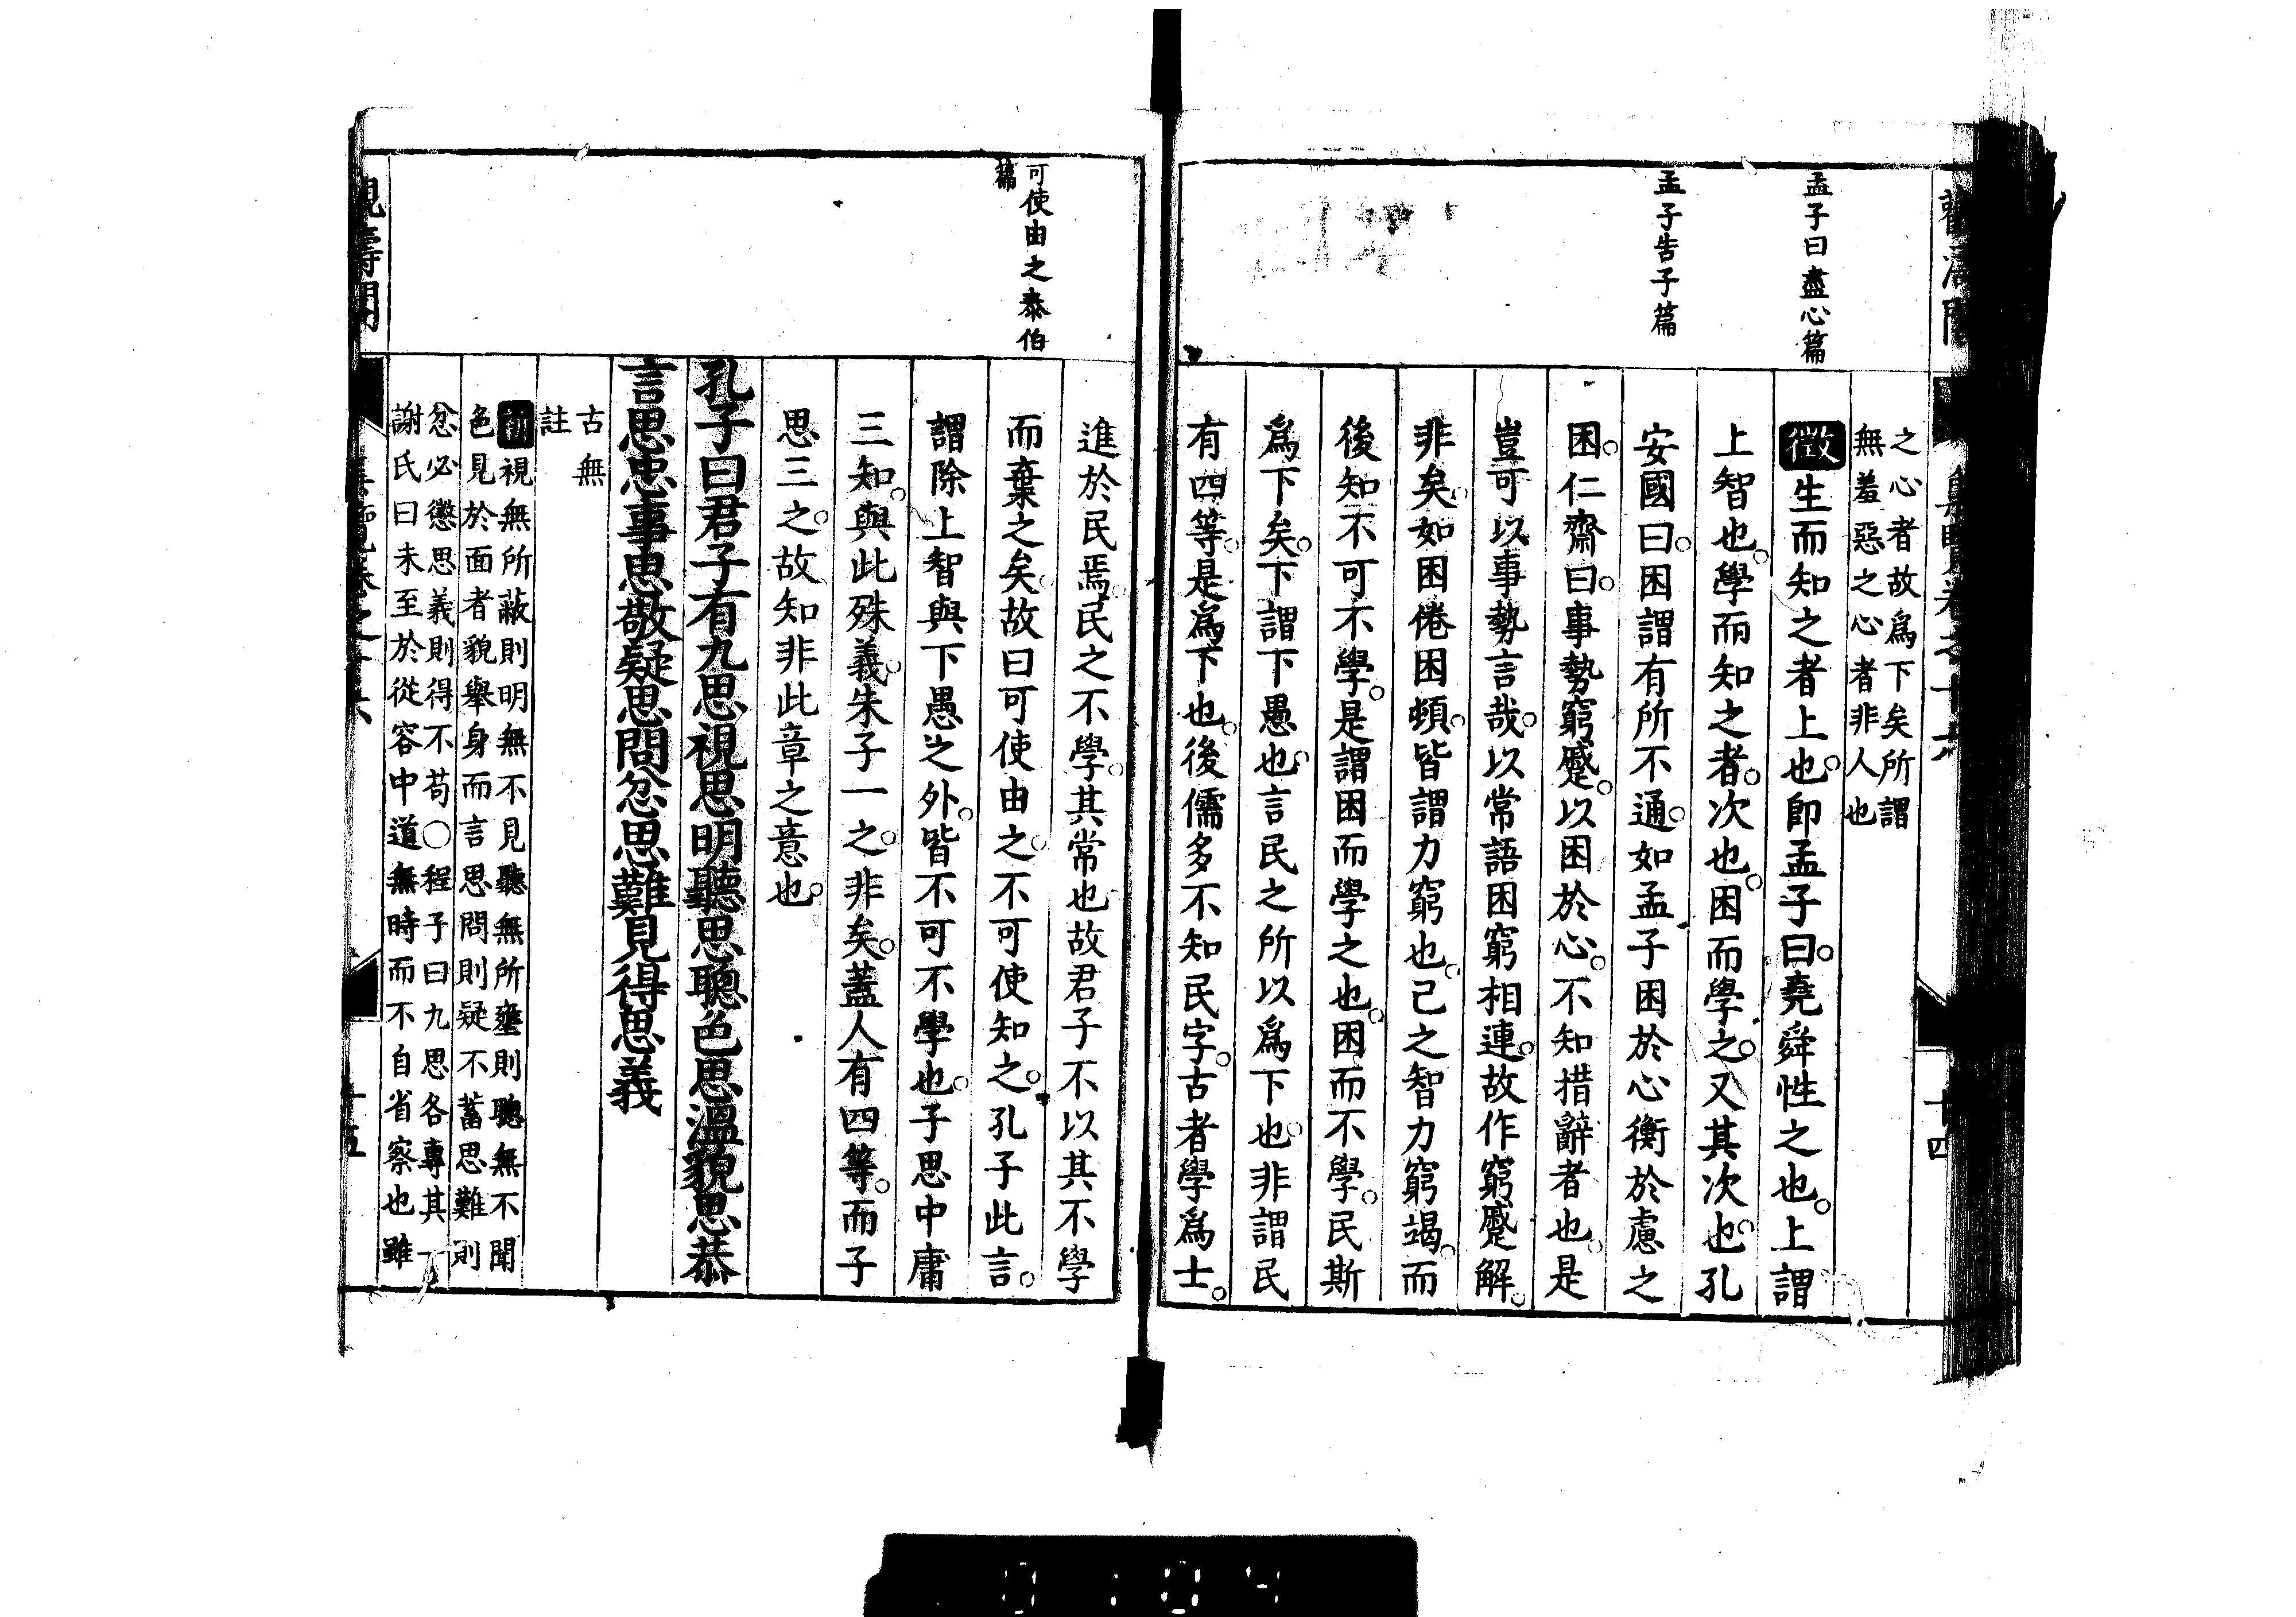 孟子曰盡心篇
孟子告子篇
之心者故爲下矣所謂
無羞惡之心者非人也
徵生而知之者上也。卽孟子曰。堯舜性之也。上謂
上智也。學而知之者。次也。困而學之。又其次也。孔
安國曰。困謂有所不通。如孟子困於心衡於慮之
困。仁齋曰。事勢窮蹙。以困於心。不知措辭者也。是
豈可以事勢言哉。以常語困窮相連。故作窮蹙解。
非矣。如困倦困頓。皆謂力窮也。己之智力窮竭。而
後知不可不學。是謂困而學之也。困而不學。民斯
爲下矣。下謂下愚也。言民之所以爲下也。非謂民
有四等。是爲下也。後儒多不知民字。古者學爲士。
十四
可使由之泰伯
篇
進於民焉。民之不學。其常也故君子不以其不學
而棄之矣。故曰可使由之。不可使知之。孔子此言。
謂除上智與下愚之外。皆不可不學也。子思中庸
三知。與此殊義。朱子一之。非矣。蓋人有四等。而子
思三之。故知非此章之意也。
孔子曰君子有九思視思明聽思聰色思溫貌思恭
言思忠事思敬疑思問忿思難見得思義
古無
註
視無所蔽則明無不見聽無所壅則聰無不聞
色見於面者貌舉身而言思問則疑不蓄思難則
忿必懲思義則得不苟○程子曰九思各專其一
謝氏曰未至於從容中道無時而不自省察也雖